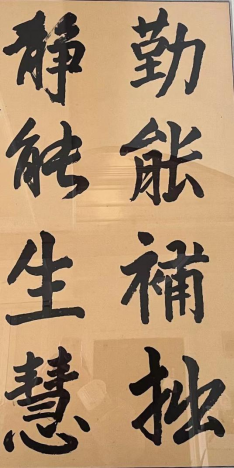 勤能補拙
静能生慧